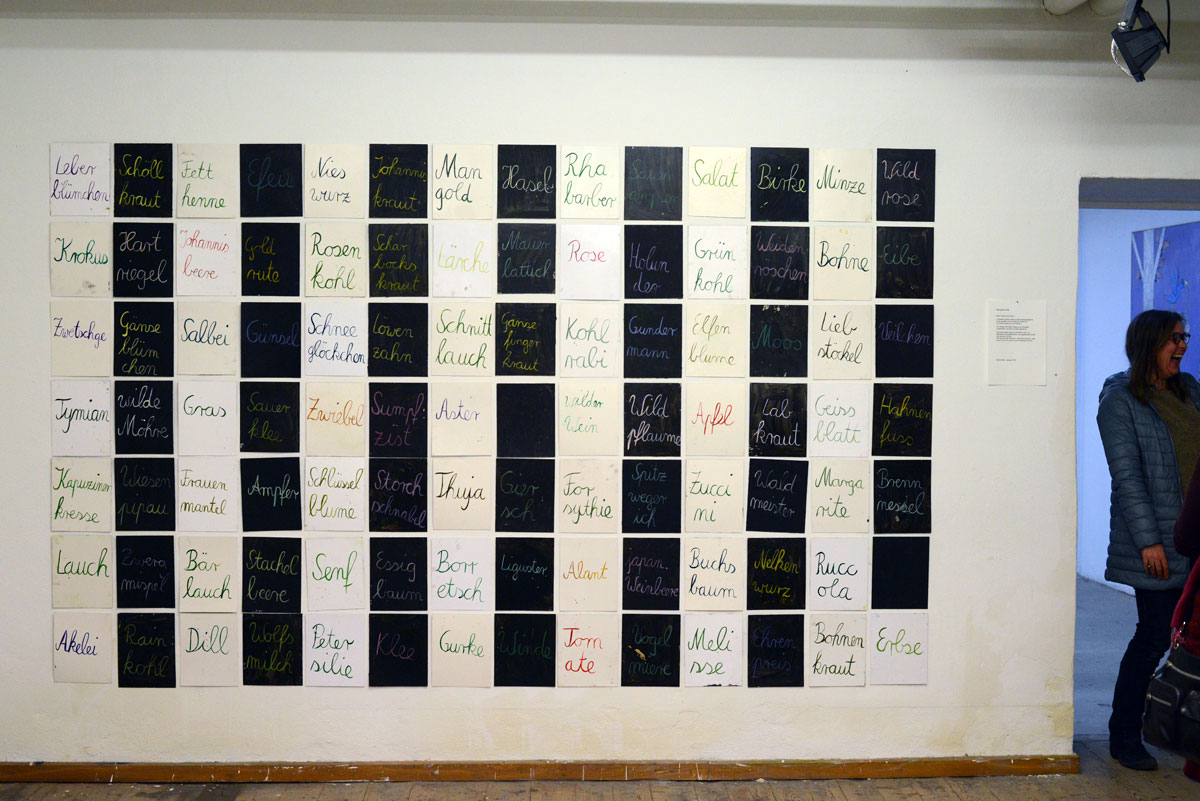 Leber
blümchen
Schöll
kraut
Fett
henne
Efeu
Nies
wurz
Johannis
kraut
Man
gold
Hasel
Rha
barber
Salat
Birke
Minze
Wild
rose
Krokus
Hart
riegel
Johannis
beere
Gold
rute
Rosen
kohl
Schar
bocks
kraut
Lärche
Mauer
lattich
Rose
Holun
der
Grün
kohl
Weiden
röschen
Bohne
Eibe
Zwetschge
Gänse
blüm
chen
Salbei
Günsel
Schnee
glöckchen
Löwen
zahn
Schnitt
lauch
Gänse
finger
kraut
Kohl
rabi
Gunder
mann
Elfen
blume
Moos
Lieb
stöckel
Veilchen
Tymian
wilde
Möhre
Gras
Sauer
klee
Zwiebel
Sumpf
zist
Aster
wilder
Wein
Wild
pflaume
Apfel
Lab
kraut
Geiss
blatt
Hahnen
fuss
Kapuziner
kresse
Wiesen
pipau
Frauen
mantel
Ampfer
Schlüssel
blume
Storch
schnabel
Thuja
Gier
sch
For
sythie
Spitz
weger
ich
Zucci
ni
Wald
meister
Marga
rite
Brenn
nessel
Lauch
Zwerg
mispel
Bär
lauch
Stachel
beere
Senf
Essig
baum
Borr
etsch
Liguster
Alant
japan.
Weinbeere
Buchs
baum
Nelken
wurz
Rucc
ola
Akelei
Rain
kohl
Dill
Wolfs
milch
Peter
silie
Klee
Gurke
Winde
Tom
ate
Vogel
miere
Meli
sse
Ehren
preis
Bohnen
kraut
Erbse